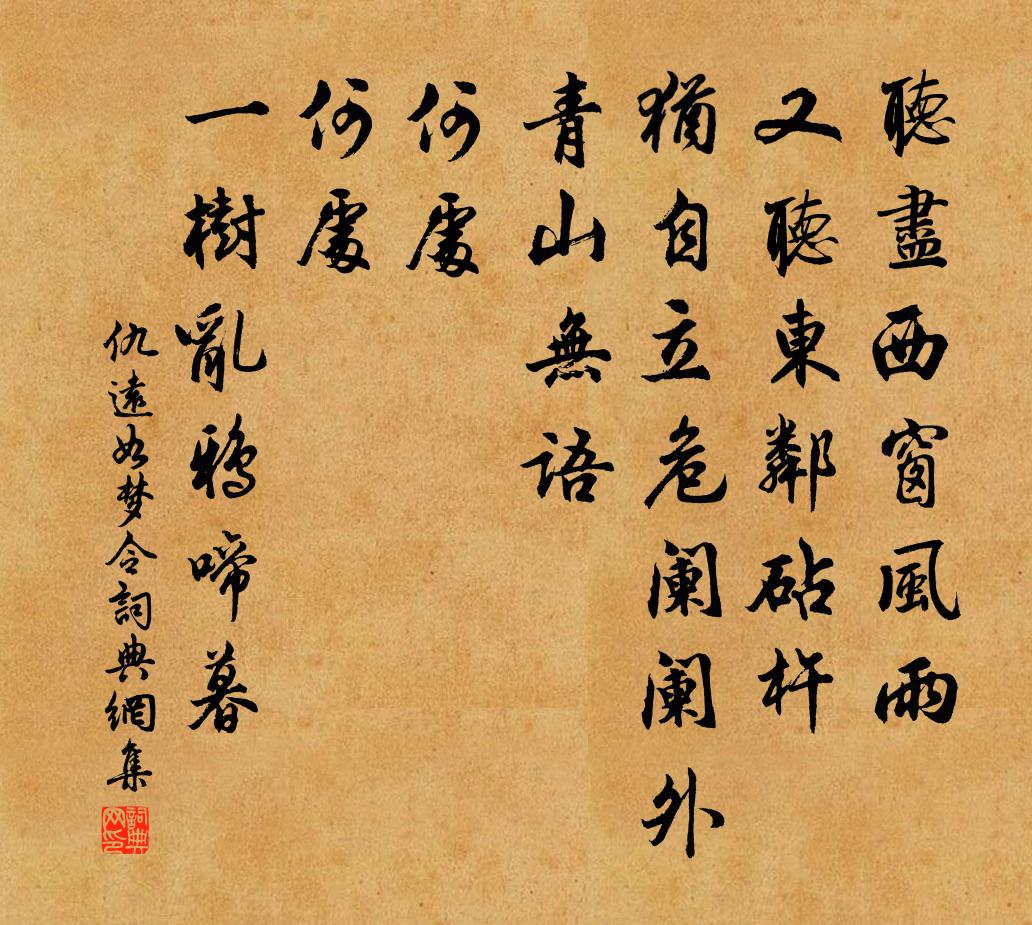 聽盡西窗風雨
又聽東鄰砧杵
猶自立危阑阑外
青山無語
何處
何處
一樹亂鴉啼暮
仇遠如梦令詞典網集
詞典网印